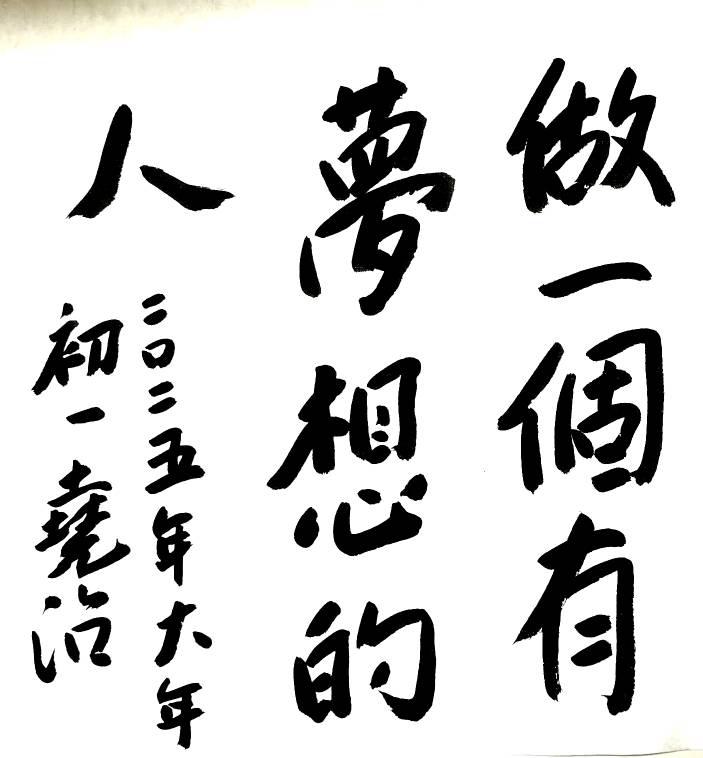 做一個有
夢想的
人
二〇二五年大年
初一堯治